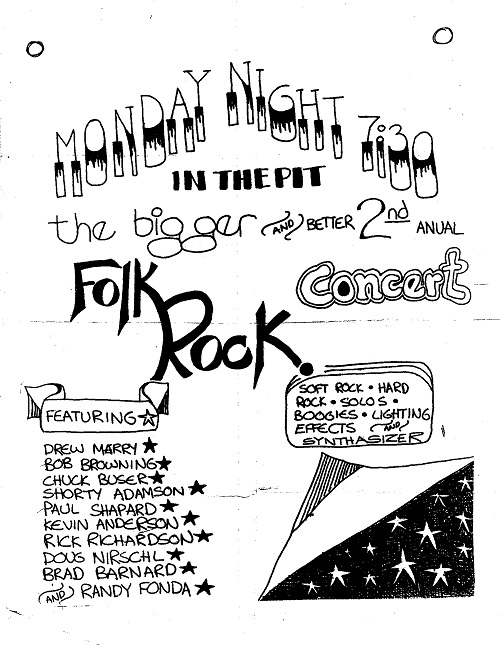 MONDAY NIGHT 7:30
IN THE PIT
the bigger AND BETTER 2nd ANUAL
FOlK ROCK.
Concert
SOFT ROCK • HARD
ROCK • SOLOS •
BOOGIES • LIGHTING
EFFECTS AND
SYNTHASIZER
FEATURING
DREW MARRY
BOB BROWNING
CHUCK BUSER
SHORTY ADAMSON
PAUL SHAPARD
KEVIN ANDERSON
RICK RICHARDSON
DOUG NIRSCHL
BRAD BARNARD
AND RANDY FONDA